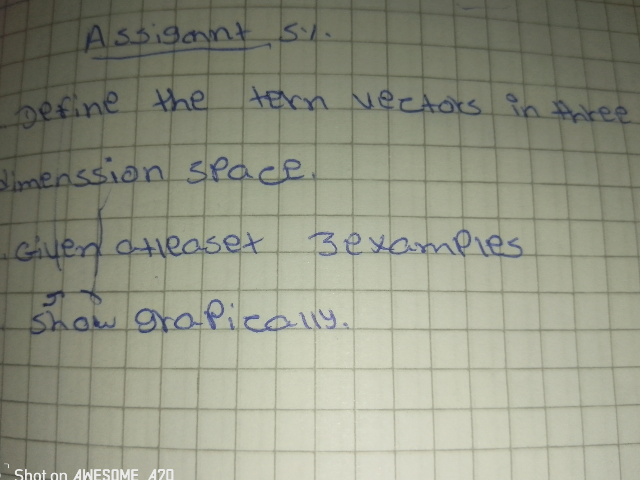 Assigannt 5%.
Define the tern vectors in three
dimenssion space.
Given atleaset 3 examples
show grapically.
Shot on AWESOME A70